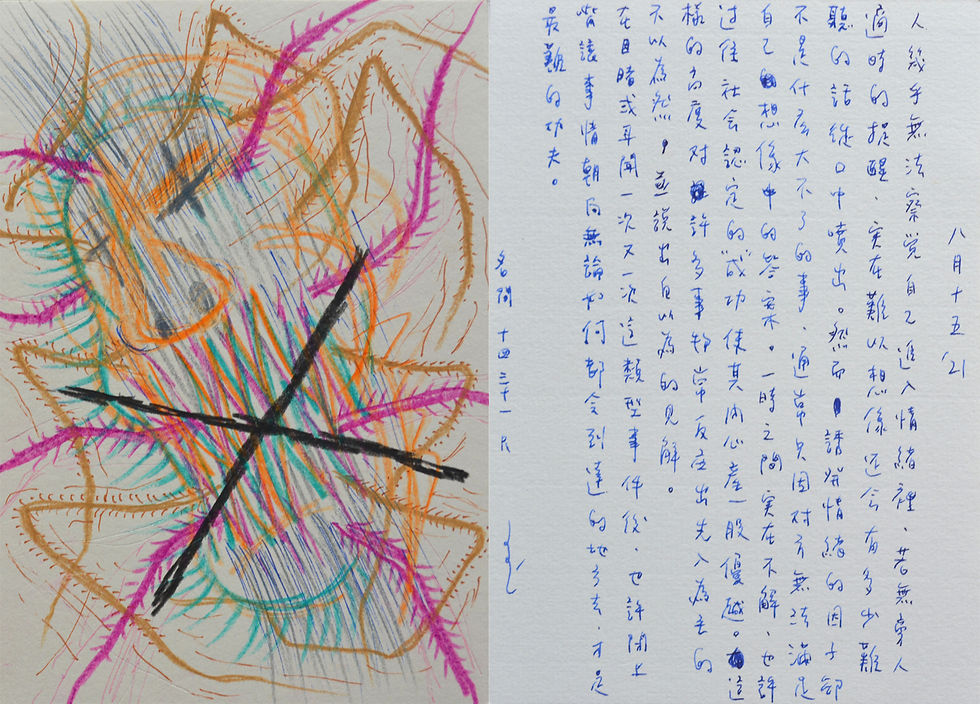 八月十五 '21
人幾乎無法察覚自己進入情緒裡、若無旁人
適時的提醒、実在難以想像还会有多少難
聽的話從口中噴出。然而誘發情緒的因子卻
不是什么大不了的事、通常只因对方無法滿足
自己想像中的答案。一時之間実在不解、也許
过往社会認定的成功使其內心產一股優越。這
樣的高度对許多事物常反应出先入為主的
不以為然，並說出自以為的見解。
在目睹或耳聞一次又一次這類型事件後、也許閉上
嘴讓事情朝向無論如何都会到達的地方去、才是
最難的功夫。
名間 十四 三十一